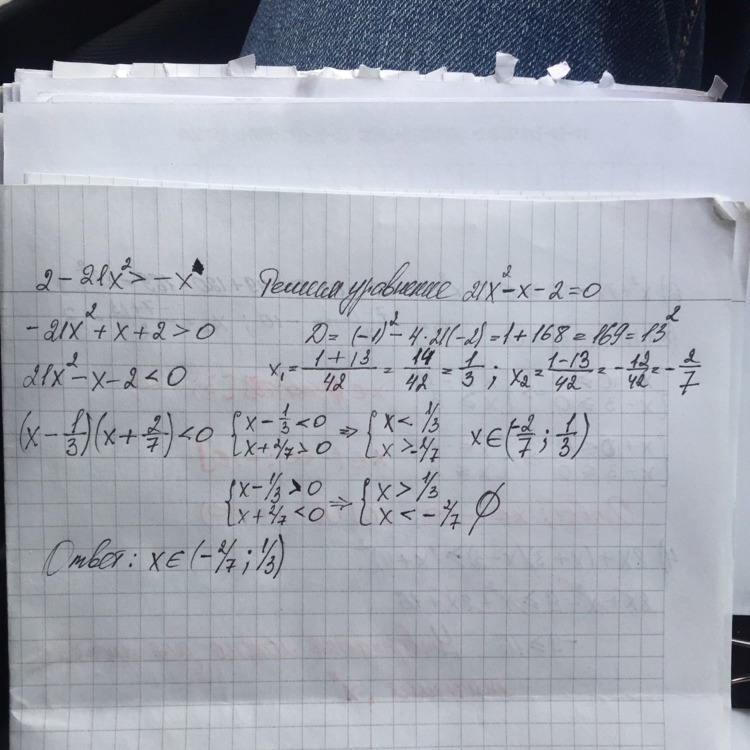 2 - 21x² > -x Решим уравнение 21x² - x - 2 = 0
-21x² + x + 2 > 0 D = (-1)² - 4·21(-2) = 1 + 168 = 169 = 13²
21x² - x - 2 < 0 x₁ = (1+13)/42 = 14/42 = 1/3 ; x₂ = (1-13)/42 = -12/42 = -2/7
(x - 1/3)(x + 2/7) < 0 { x - 1/3 < 0 ⇒ { x < 1/3
x + 2/7 > 0 x > -2/7 x ∈ (-2/7 ; 1/3)
{ x - 1/3 > 0 ⇒ { x > 1/3
x + 2/7 < 0 x < -2/7 ∅
Ответ: x ∈ (-2/7 ; 1/3)